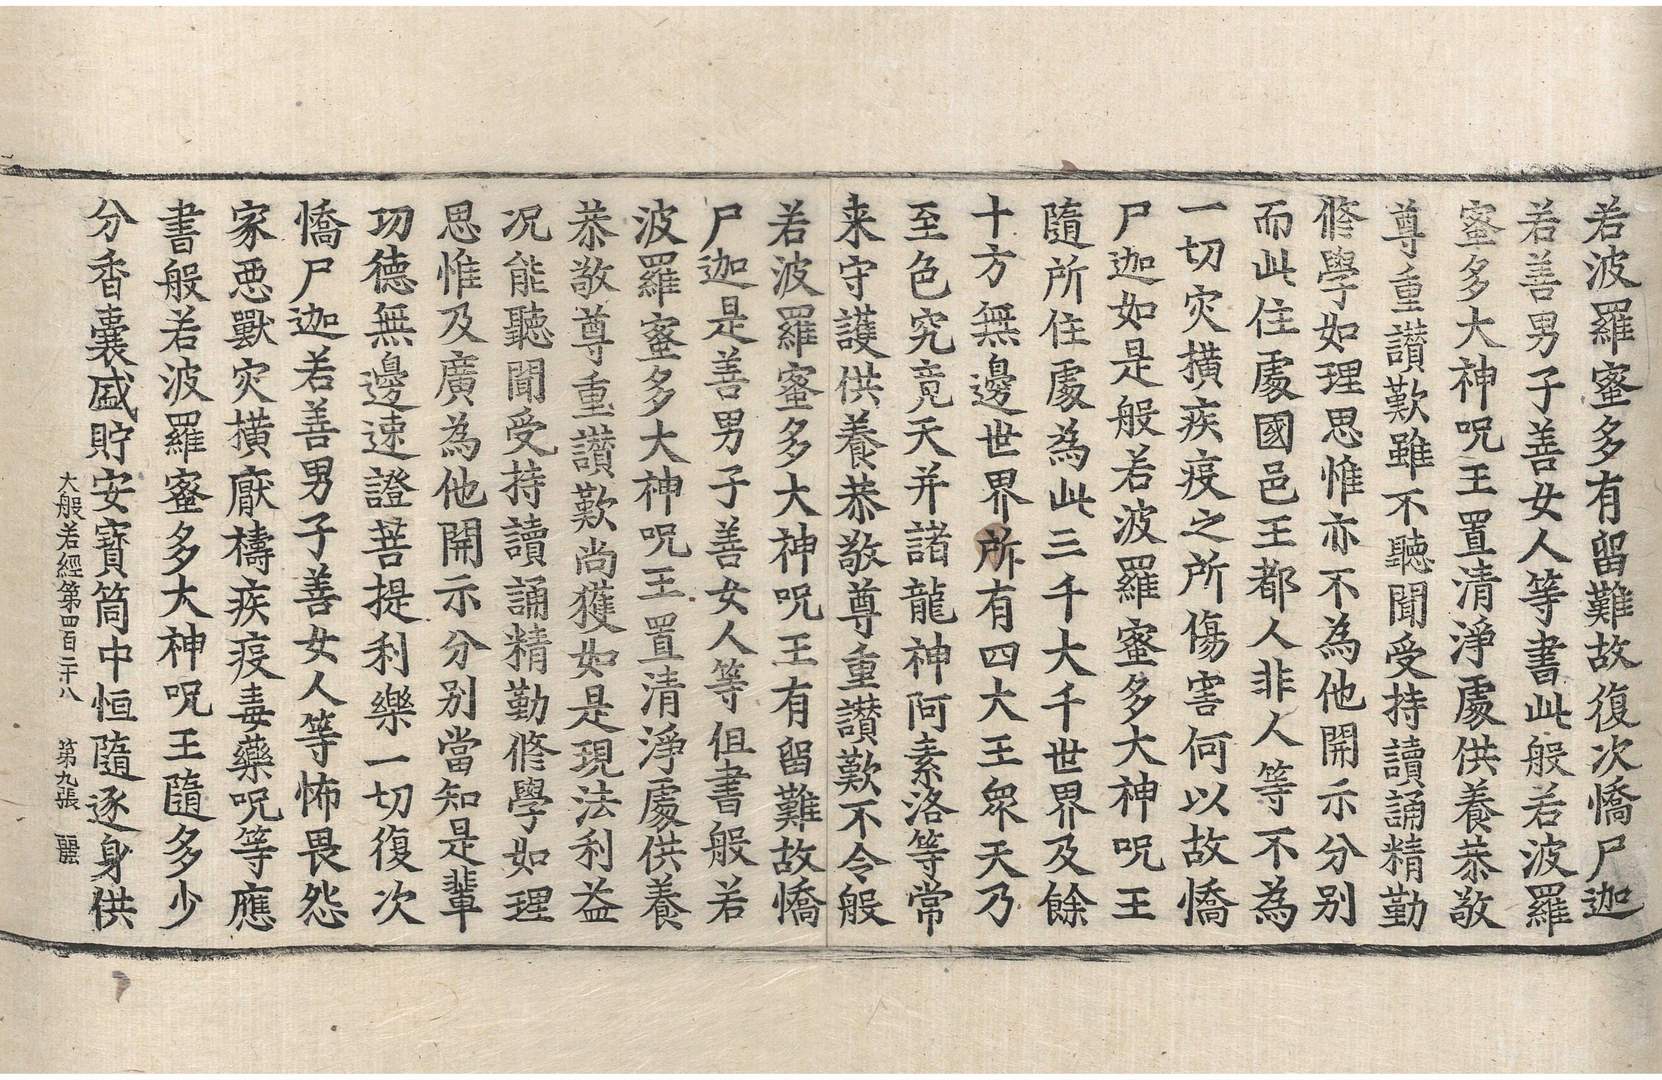 若波羅蜜多有留難故復次憍尸迦
若善男子善女人等書此般若波羅
蜜多大神呪王置清淨處供養恭敬
尊重讃歎雖不聽聞受持讀誦精勤
修學如理思惟亦不為他開示分别
而此住處國邑王都人非人等不為
一切灾橫疾疫之所傷害何以故憍
尸迦如是般若波羅蜜多大神呪王
隨所住處為此三千大千世界及餘
十方無邊世界所有四大王衆天乃
至色究竟天并諸龍神阿素洛等常
来守護供養恭敬尊重讃歎不令般
若波羅蜜多大神呪王有留難故憍
尸迦是善男子善女人等但書般若
波羅蜜多大神呪王置清淨處供養
恭敬尊重讃歎尚獲如是現法利益
况能聽聞受持讀誦精勤修學如理
思惟及廣為他開示分别當知是輩
功德無邊速證菩提利樂一切復次
憍尸迦若善男子善女人等怖畏怨
家惡獸灾橫厭禱疾疫毒藥呪等應
書般若波羅蜜多大神呪王隨多少
分香囊盛貯安寶筒中恒隨逐身供
大般若經第四百二十八　第九張　麗